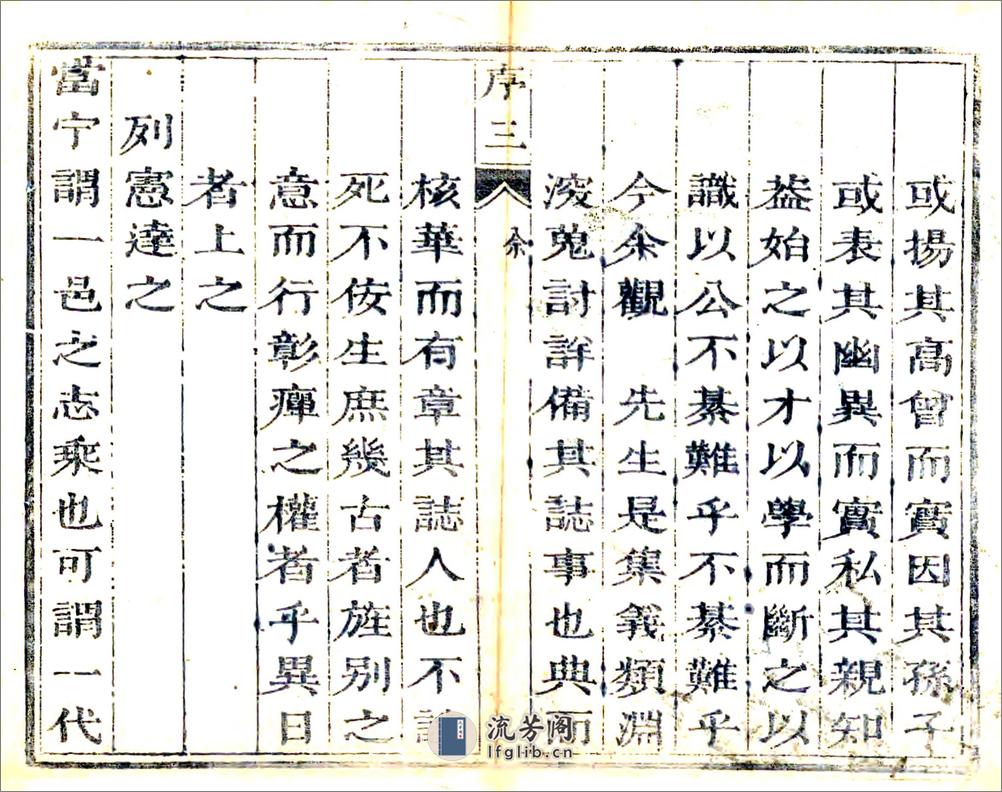 或揚其高曾而實因其孫子
或表其幽異而實私其親知
葢始之以才以學而斷之以
識以公不綦難乎不綦難乎
今余觀 先生是集義類淵
湥蒐討詳備其誌事也典而
序三 余
核華而有章其誌人也不
死不侫生庶幾古者旌別之
意而行彰癉之權者乎異日
者上之
列憲達之
當宁謂一邑之志乘也可謂一代
流芳阁
lfglib.cn